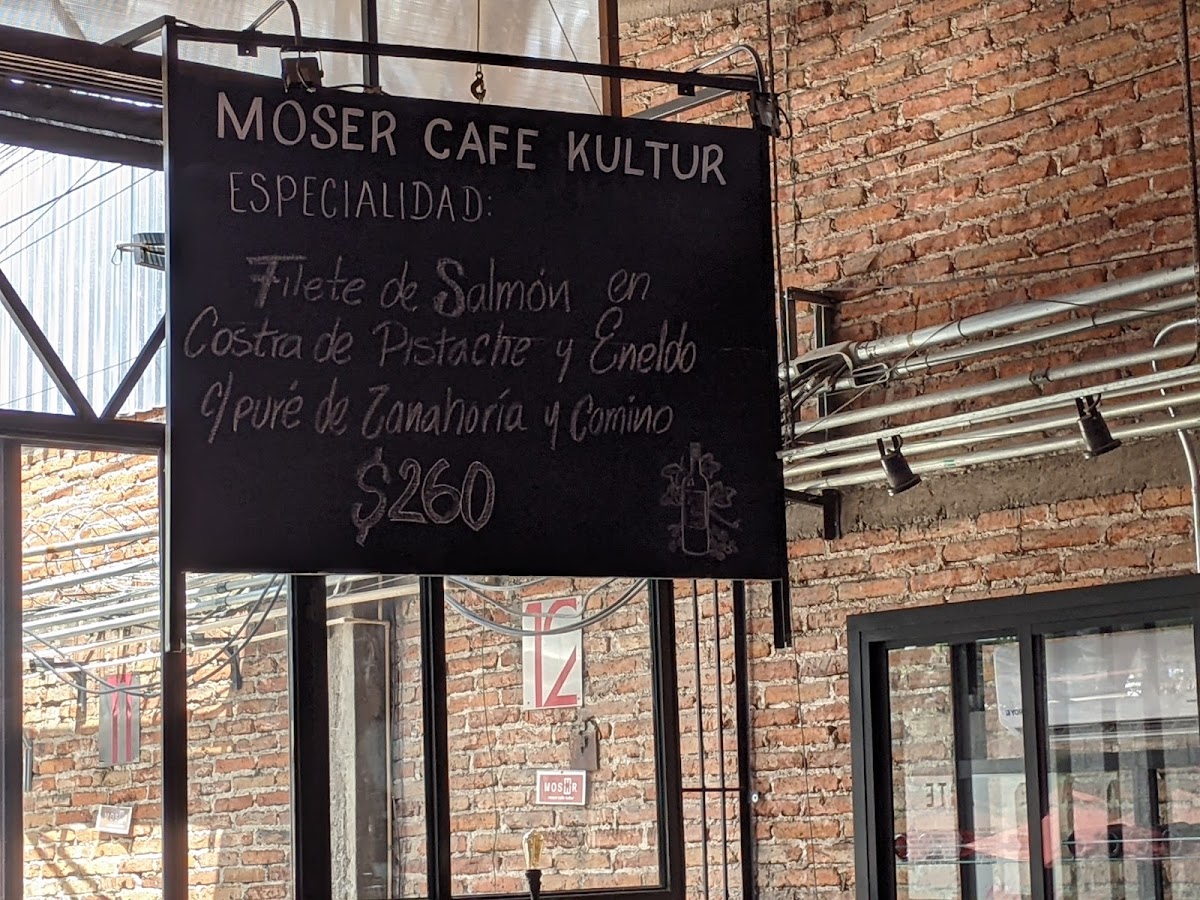 MOSER CAFE KULTUR
ESPECIALIDAD:
Filete de Salmón en
Costra de Pistache y Eneldo
c/puré de Zanahoría y Comino
$260
12
MOSER